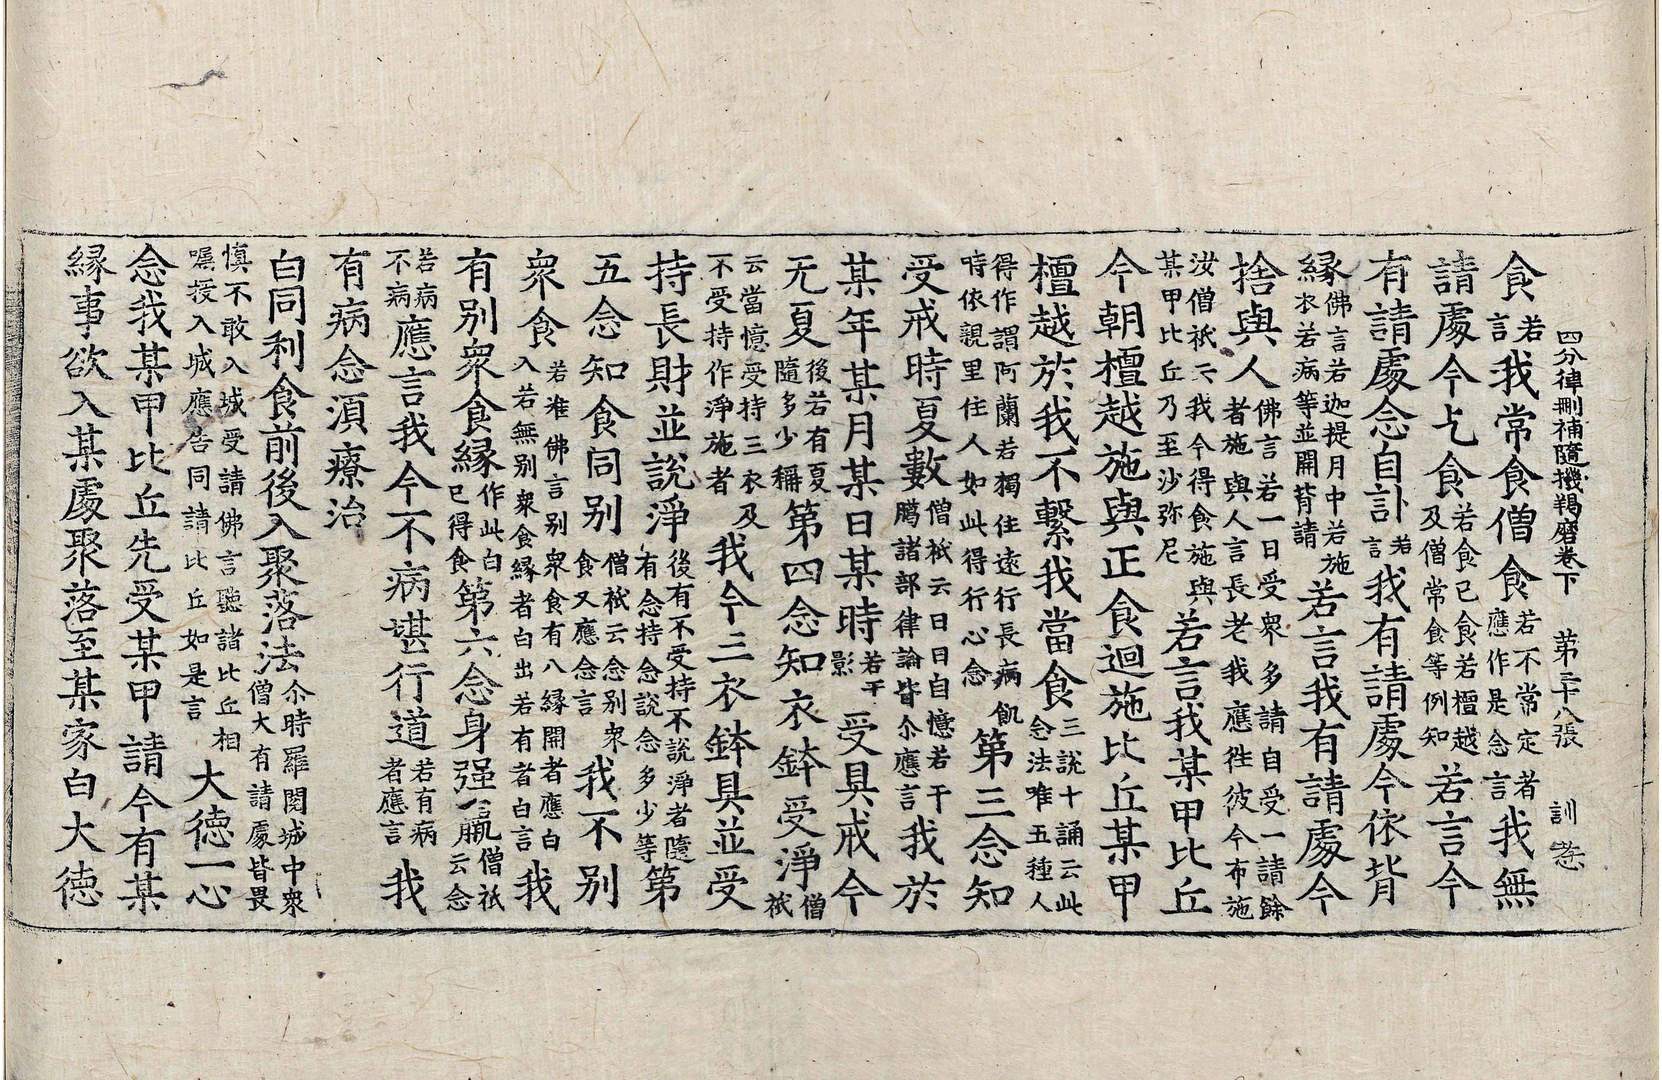 四分律刪補隨機羯磨卷下　第三十八張　訓
食若言我常食僧食若不常定者應作是念言我無
請處今乞食若食已食若檀越及僧常食等例知若言今
有請處念自訃若言我有請處今依背
緣佛言若迦提月中若施衣若病等並開背請若言我有請處今
捨與人佛言若一日受衆多請自受一請餘者施與人言長老我應徃彼今布施
汝僧祇云我今得食施與某甲比丘乃至沙弥尼若言我某甲比丘
今朝檀越施與正食迴施比丘某甲
檀越於我不繫我當食三說十誦云此念法唯五種人
得作謂阿蘭若獨住遠行長病飢時依親里住人如此得行心念第三念知
受戒時夏數僧祇云日日自憶若干臈諸部律論皆尒應言我於
某年某月某日某時若干影受具戒今
无夏後若有夏隨多少稱第四念知衣鉢受淨僧祇
云當憶受持三衣及不受持作淨施者我今三衣鉢具並受
持長財並說淨後有不受持不說淨者隨有念持念說念多少等第
五念知食同别僧祇云念别衆食又應念言我不别
衆食若准佛言别衆食有八緣開者應白入若無别衆食緣者白出若有者白言我
有别衆食緣作此白已得食第六念身强羸僧祇云念
若病不病應言我今不病堪行道若有病者應言我
有病念須療治
白同利食前後入聚落法尒時羅閱城中衆僧大有請處皆畏
慎不敢入城受請佛言聽諸比丘相囑授入城應告同請比丘如是言大德一心
念我某甲比丘先受某甲請今有某
緣事欲入某處聚落至某家白大德